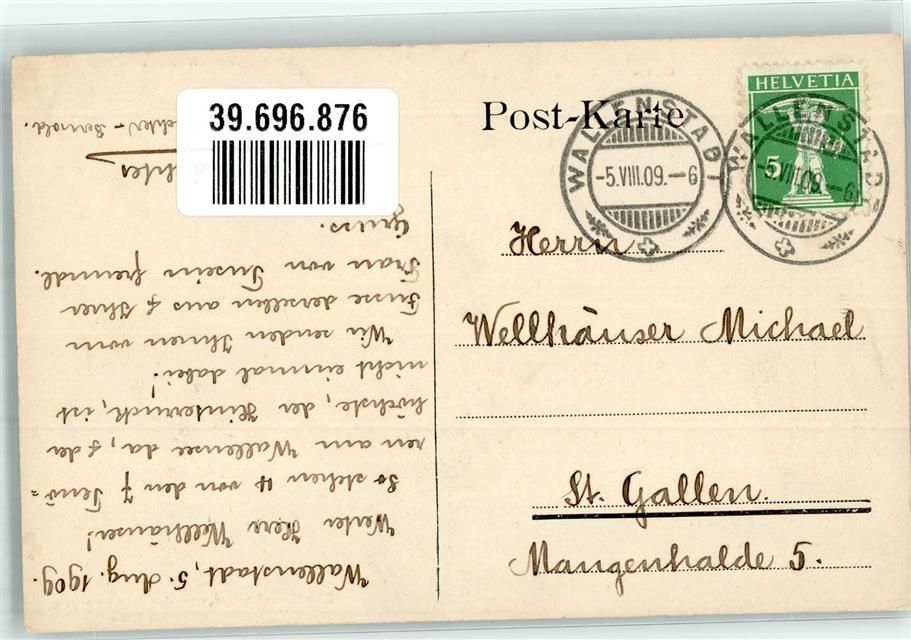 39.696.876
Post-Karte
HELVETIA
5
WALLENSTADT
-5.VIII.09.-6
WALLENSTADT
-5.VIII.09.-6
Herrn
Wellhäuser Michael
St. Gallen.
Mangenhalde 5.
Wallenstadt, 5. Aug. 1909.
Werter Herr Wellhäuser!
So stehen 4 von den 7 Senö=
ren am Wallensee da, & der
höchste, der Hinterruck, ist
nicht einmal dabei!
Wir senden Ihnen vom
Fusse derselben aus & Ihrer
Frau von Insein freundl.
Gruss.